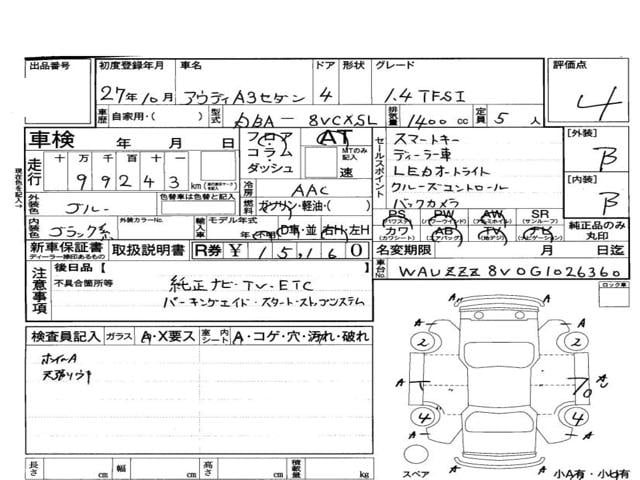 出品番号 初度登録年月 車名 ドア 形状 グレード 評価点
27年10月 アウディA3セダン 4 1.4 TFSI 4
車歴 自家用・( ) 型式 DBA-8VCXSL 排気量 1400 cc 定員 5 人
車検 年 月 日 フロア コラム ダッシュ AT MTのみ記入 速
走行 十 万 千 百 十 99243 km
冷房 AAC
外装色 ブルー 色替車は色替と記入 燃料 ガソリン・軽油・( )
内装色 ブラック系 外装カラーNo. 輸入車 モデル年式 年・不明 D車・並 右H・左H
新車保証書 ディーラー捺印あるもの 取扱説明書 R券 ¥ 15,160
セールスポイント
スマートキー
ディーラー車
LEDオートライト
クルーズコントロール
バックカメラ
PS PW AW SR
(パワステ) (パワーウインド) (アルミホイル) (サンルーフ)
カワ AB TV ナビ
(カワシート) (エアバック) (地デジ) (ナビゲーション)
[外装] B
[内装] B
純正品のみ丸印
名変期限 月 日迄
車台No. WAUZZZ8V0G1026360
現在色を記入→
注意事項
後日品【 】
不具合箇所等 純正ナビ・TV・ETC
パーキングエイド・スタートストップシステム
検査員記入 ガラス A・X要ス 室内シート A・コゲ・穴・汚れ・破れ
ホイールA
ロック車
A A
2 2
A A
4 4
A A
スペア 小A有・小U有
長さ cm 幅 cm 高さ cm 積載量 kg